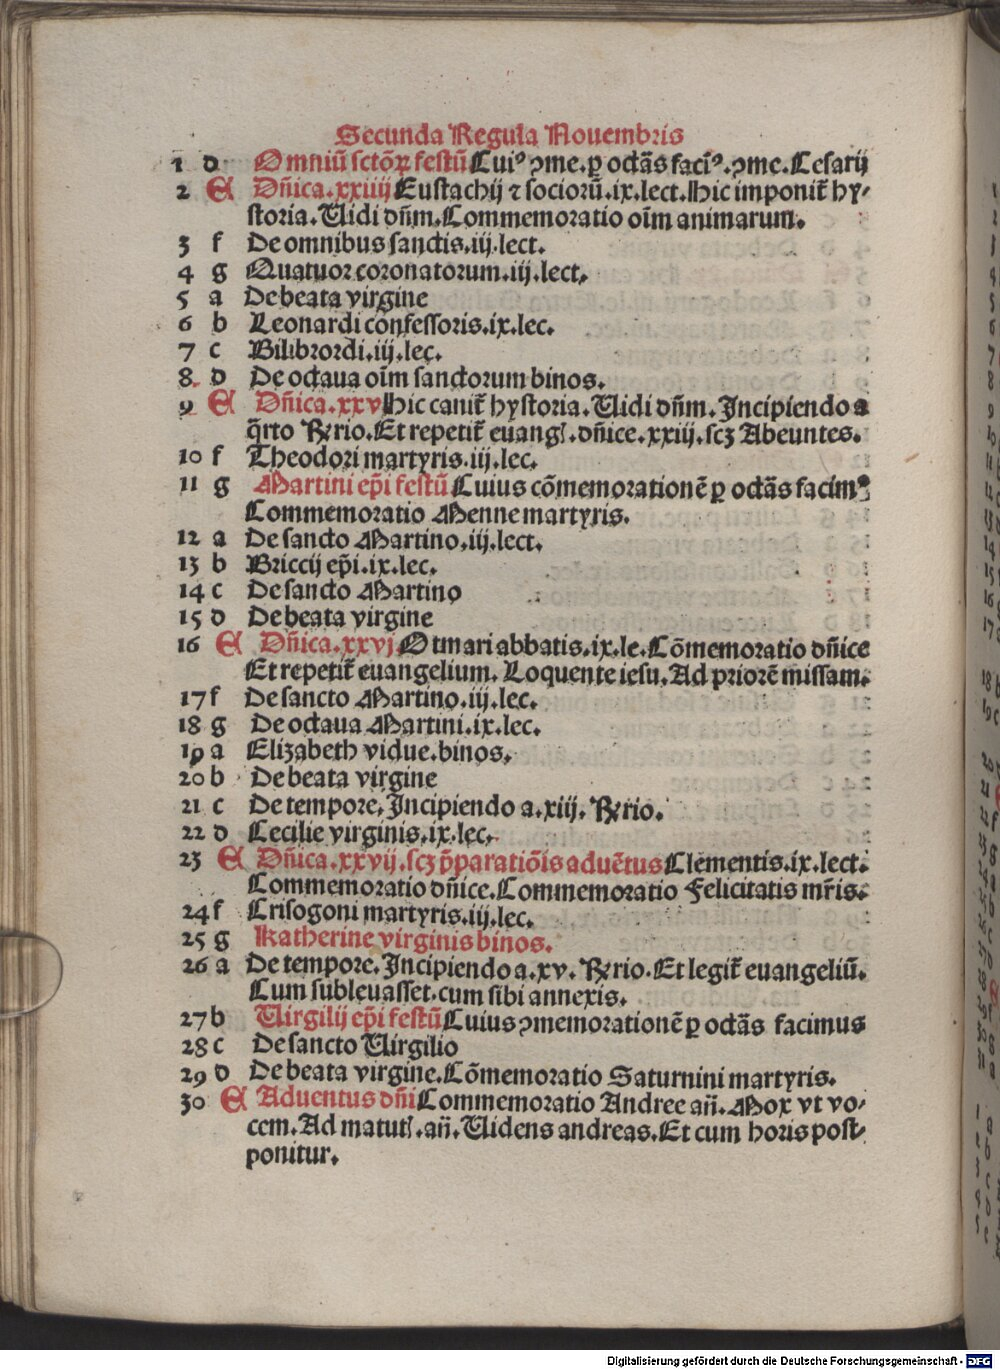 Secunda Regula Nouembris
1 d Omniū sctōꝝ festū Cuiꝰ ꝯme. ꝑ octās faciꝰ. ꝯme. Cesarij
2 E Dñica. xxiiij Eustachij ⁊ sociorū. ix. lect. Hic imponit̄ hy⸗
storia. Uidi dñm. Commemoratio oīm animarum.
3 f De omnibus sanctis. iij. lect.
4 g Quatuor coronatorum. iij. lect.
5 a De beata virgine
6 b Leonardi confessoris. ix. lec.
7 c Bilibrordi. iij. lec.
8 d De octaua oīm sanctorum binos.
9 E Dñica. xxv Hic canit̄ hystoria. Uidi dñm. Incipiendo a
q̄rto Rꝛrio. Et repetit̄ euangl̄. dñice. xxiij. scꝫ Abeuntes.
10 f Theodori martyris. iij. lec.
11 g Martini ep̄i festū Cuius cōmemorationē ꝑ octās facimꝰ
Commemoratio Menne martyris.
12 a De sancto Martino. iij. lect.
13 b Briccij ep̄i. ix. lec.
14 c De sancto Martino
15 d De beata virgine
16 E Dñica. xxvj Otmari abbatis. ix. le. Cōmemoratio dñice
Et repetit̄ euangelium. Loquente iesu. Ad priorē missam.
17 f De sancto Martino. iij. lec.
18 g De octaua Martini. ix. lec.
19 a Elizabeth vidue. binos.
20 b De beata virgine
21 c De tempore. Incipiendo a. xiij. Rꝛrio.
22 d Cecilie virginis. ix. lec.
23 E Dñica. xxvij. scꝫ p̄paratiōis aduētus Clementis. ix. lect.
Commemoratio dñice. Commemoratio Felicitatis mr̄is.
24 f Crisogoni martyris. iij. lec.
25 g Katherine virginis binos.
26 a De tempore. Incipiendo a. xv. Rꝛrio. Et legit̄ euangeliū.
Cum subleuasset. cum sibi annexis.
27 b Uirgilij ep̄i festū Cuius ꝯmemorationē ꝑ octās facimus
28 c De sancto Uirgilio
29 d De beata virgine. Cōmemoratio Saturnini martyris.
30 E Aduentus dñi Commemoratio Andree añ. Mox vt vo⸗
cem. Ad matutl̄. añ. Uidens andreas. Et cum horis post⸗
ponitur.
Digitalisierung gefördert durch die Deutsche Forschungsgemeinschaft - DFG